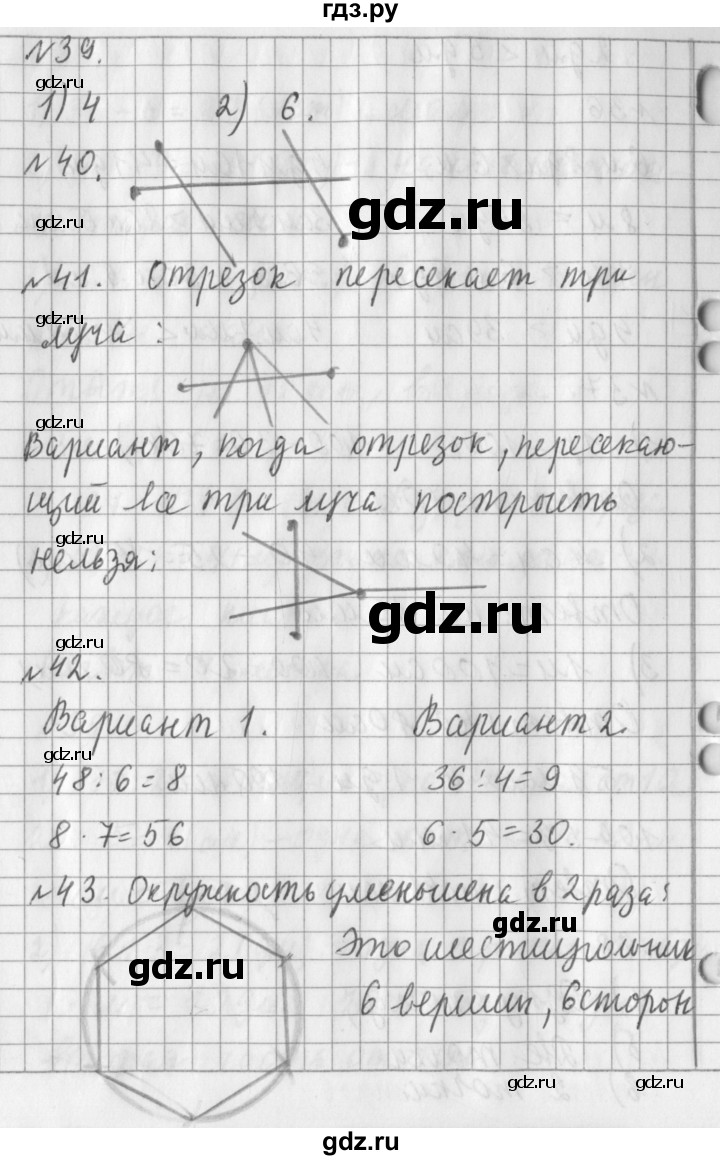 гдз.ру
№39.
gdz.ru
1) 4 2) 6.
№40.
gdz.ru
gdz.ru
№41. Отрезок пересекает три
gdz.ru
луча:
gdz.ru
Вариант, когда отрезок, пересекаю-
щий все три луча построить
gdz.ru
нельзя:
gdz.ru
№42.
Вариант 1. Вариант 2.
gdz.ru
48:6=8 36:4=9
8·7=56 6·5=30.
№43. Окружность уменьшена в 2 раза:
gdz.ru
Это шестиугольник
gdz.ru
6 вершин, 6 сторон
gdz.ru gdz.ru
gdz.ru